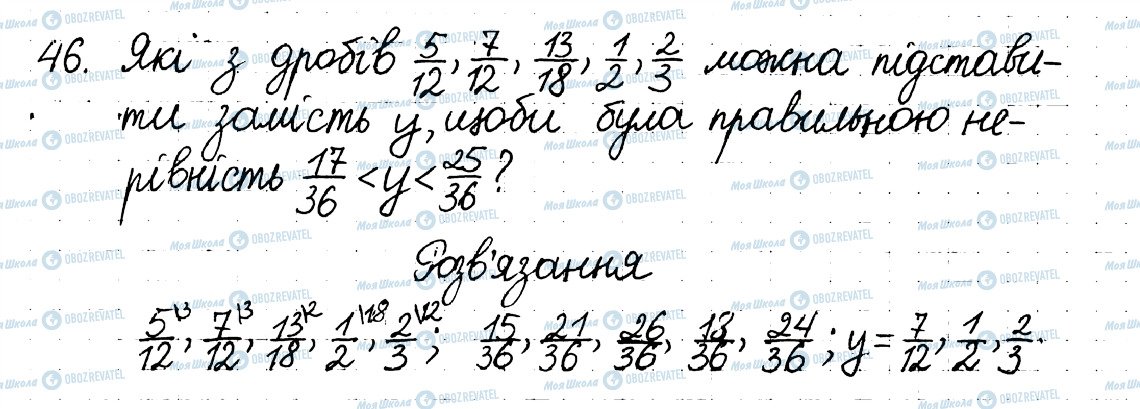 46. Які з дробів 5/12, 7/12, 13/18, 1/2, 2/3 можна підстави-
ти замість y, щоби була правильною не-
рівність 17/36 < y < 25/36?
Розв'язання
5/12\3, 7/12\3, 13/18\2, 1/2\18, 2/3\12; 15/36, 21/36, 26/36, 18/36, 24/36; y = 7/12, 1/2, 2/3.
Моя Школа OBOZREVATEL